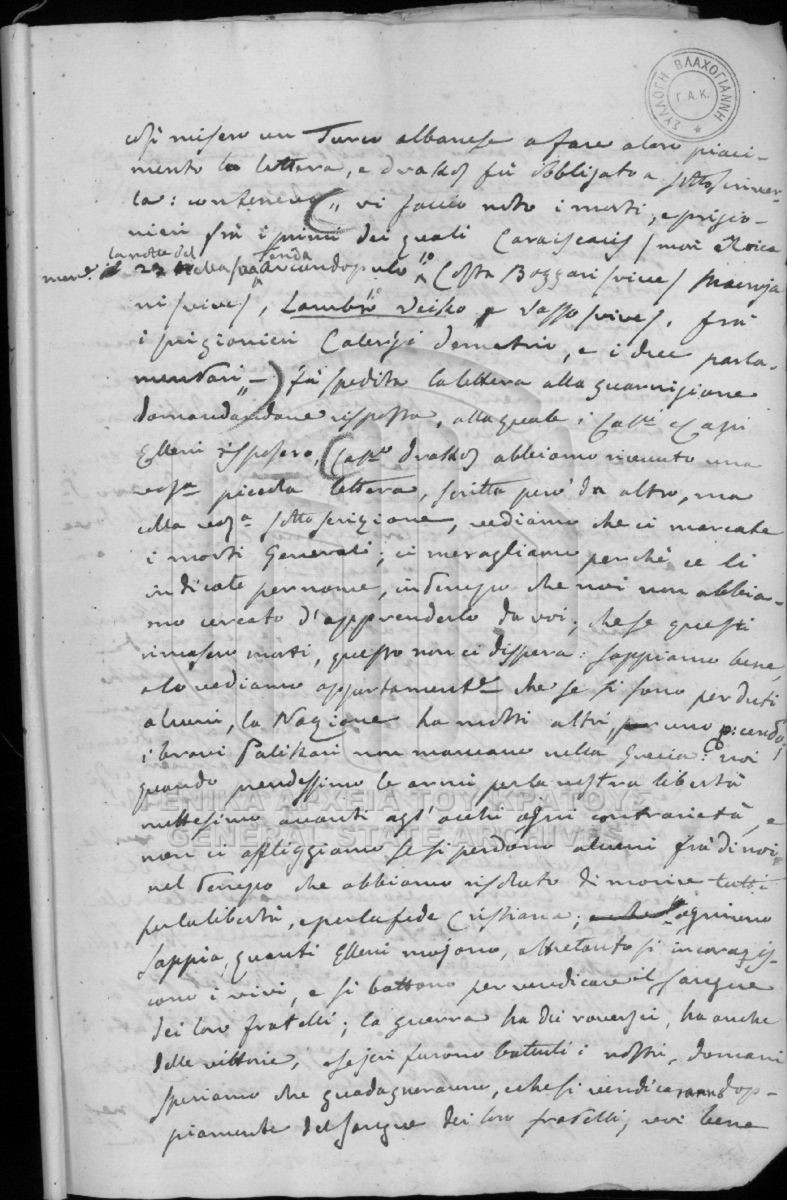 ΣΥΛΛΟΓΗ ΒΛΑΧΟΓΙΑΝΝΗ
Γ.Α.Κ.
così misero un Turco albanese a fare a loro piaci-
mento la lettera, e Drakos fù obbligato a sottoscriver-
la: conteneva (" vi faccio noto i morti, e prigio-
nieri frà i primi dei quali Caraiscachis / morì
la notte del
22 tenda
Costa Bozzari / vive / Macrija
ni / vive /, Lambro Veiko e Vasso / vive /, frà
i prigionieri Calergi Demetrio, e i dieci parla-
mentari " — ) fù spedita la lettera alla guarnigione
domandandone risposta, alla quale i Capi
Elleni risposero, (Capno Drakos abbiamo ricevuto una
vosa piccola lettera, scritta però da altro, ma
colla vosa sottoscrizione, vediamo che ci marcate
i morti Generali; ci meravigliamo perchè ce li
indicate per nome, in tempo che noi non abbia-
mo cercato d'apprenderlo da voi; che se questi
rimasero morti, questo non ci dispera: sappiamo bene,
e lo vediamo appartamente che se si sono perduti
alcuni, la Nazione ha molti altri,
i bravi Palikari non mancano nella Grecia: noi
quando prendessimo le armi per la nostra libertà
mettessimo avanti agl'occhi ogni contrarietà, e
non ci affliggiamo se si perdono alcuni frà di noi,
nel tempo che abbiamo risoluto di morire tutti
per la libertà, e per la fede Cristiana; ogniuno
sappia, quanti Elleni mojono, altretanto si incoragis-
cono i vivi, e si battono per vendicare il sangue
dei loro fratelli; la guerra ha dei roversci, ha anche
delle vittorie, e se jeri furono battuti i nostri, domani
speriamo che guadagneranno, e che si vendicaranno dop-
piamente del sangue dei loro fratelli, voi bene
ΓΕΝΙΚΑ ΑΡΧΕΙΑ ΤΟΥ ΚΡΑΤΟΥΣ
GENERAL STATE ARCHIVES